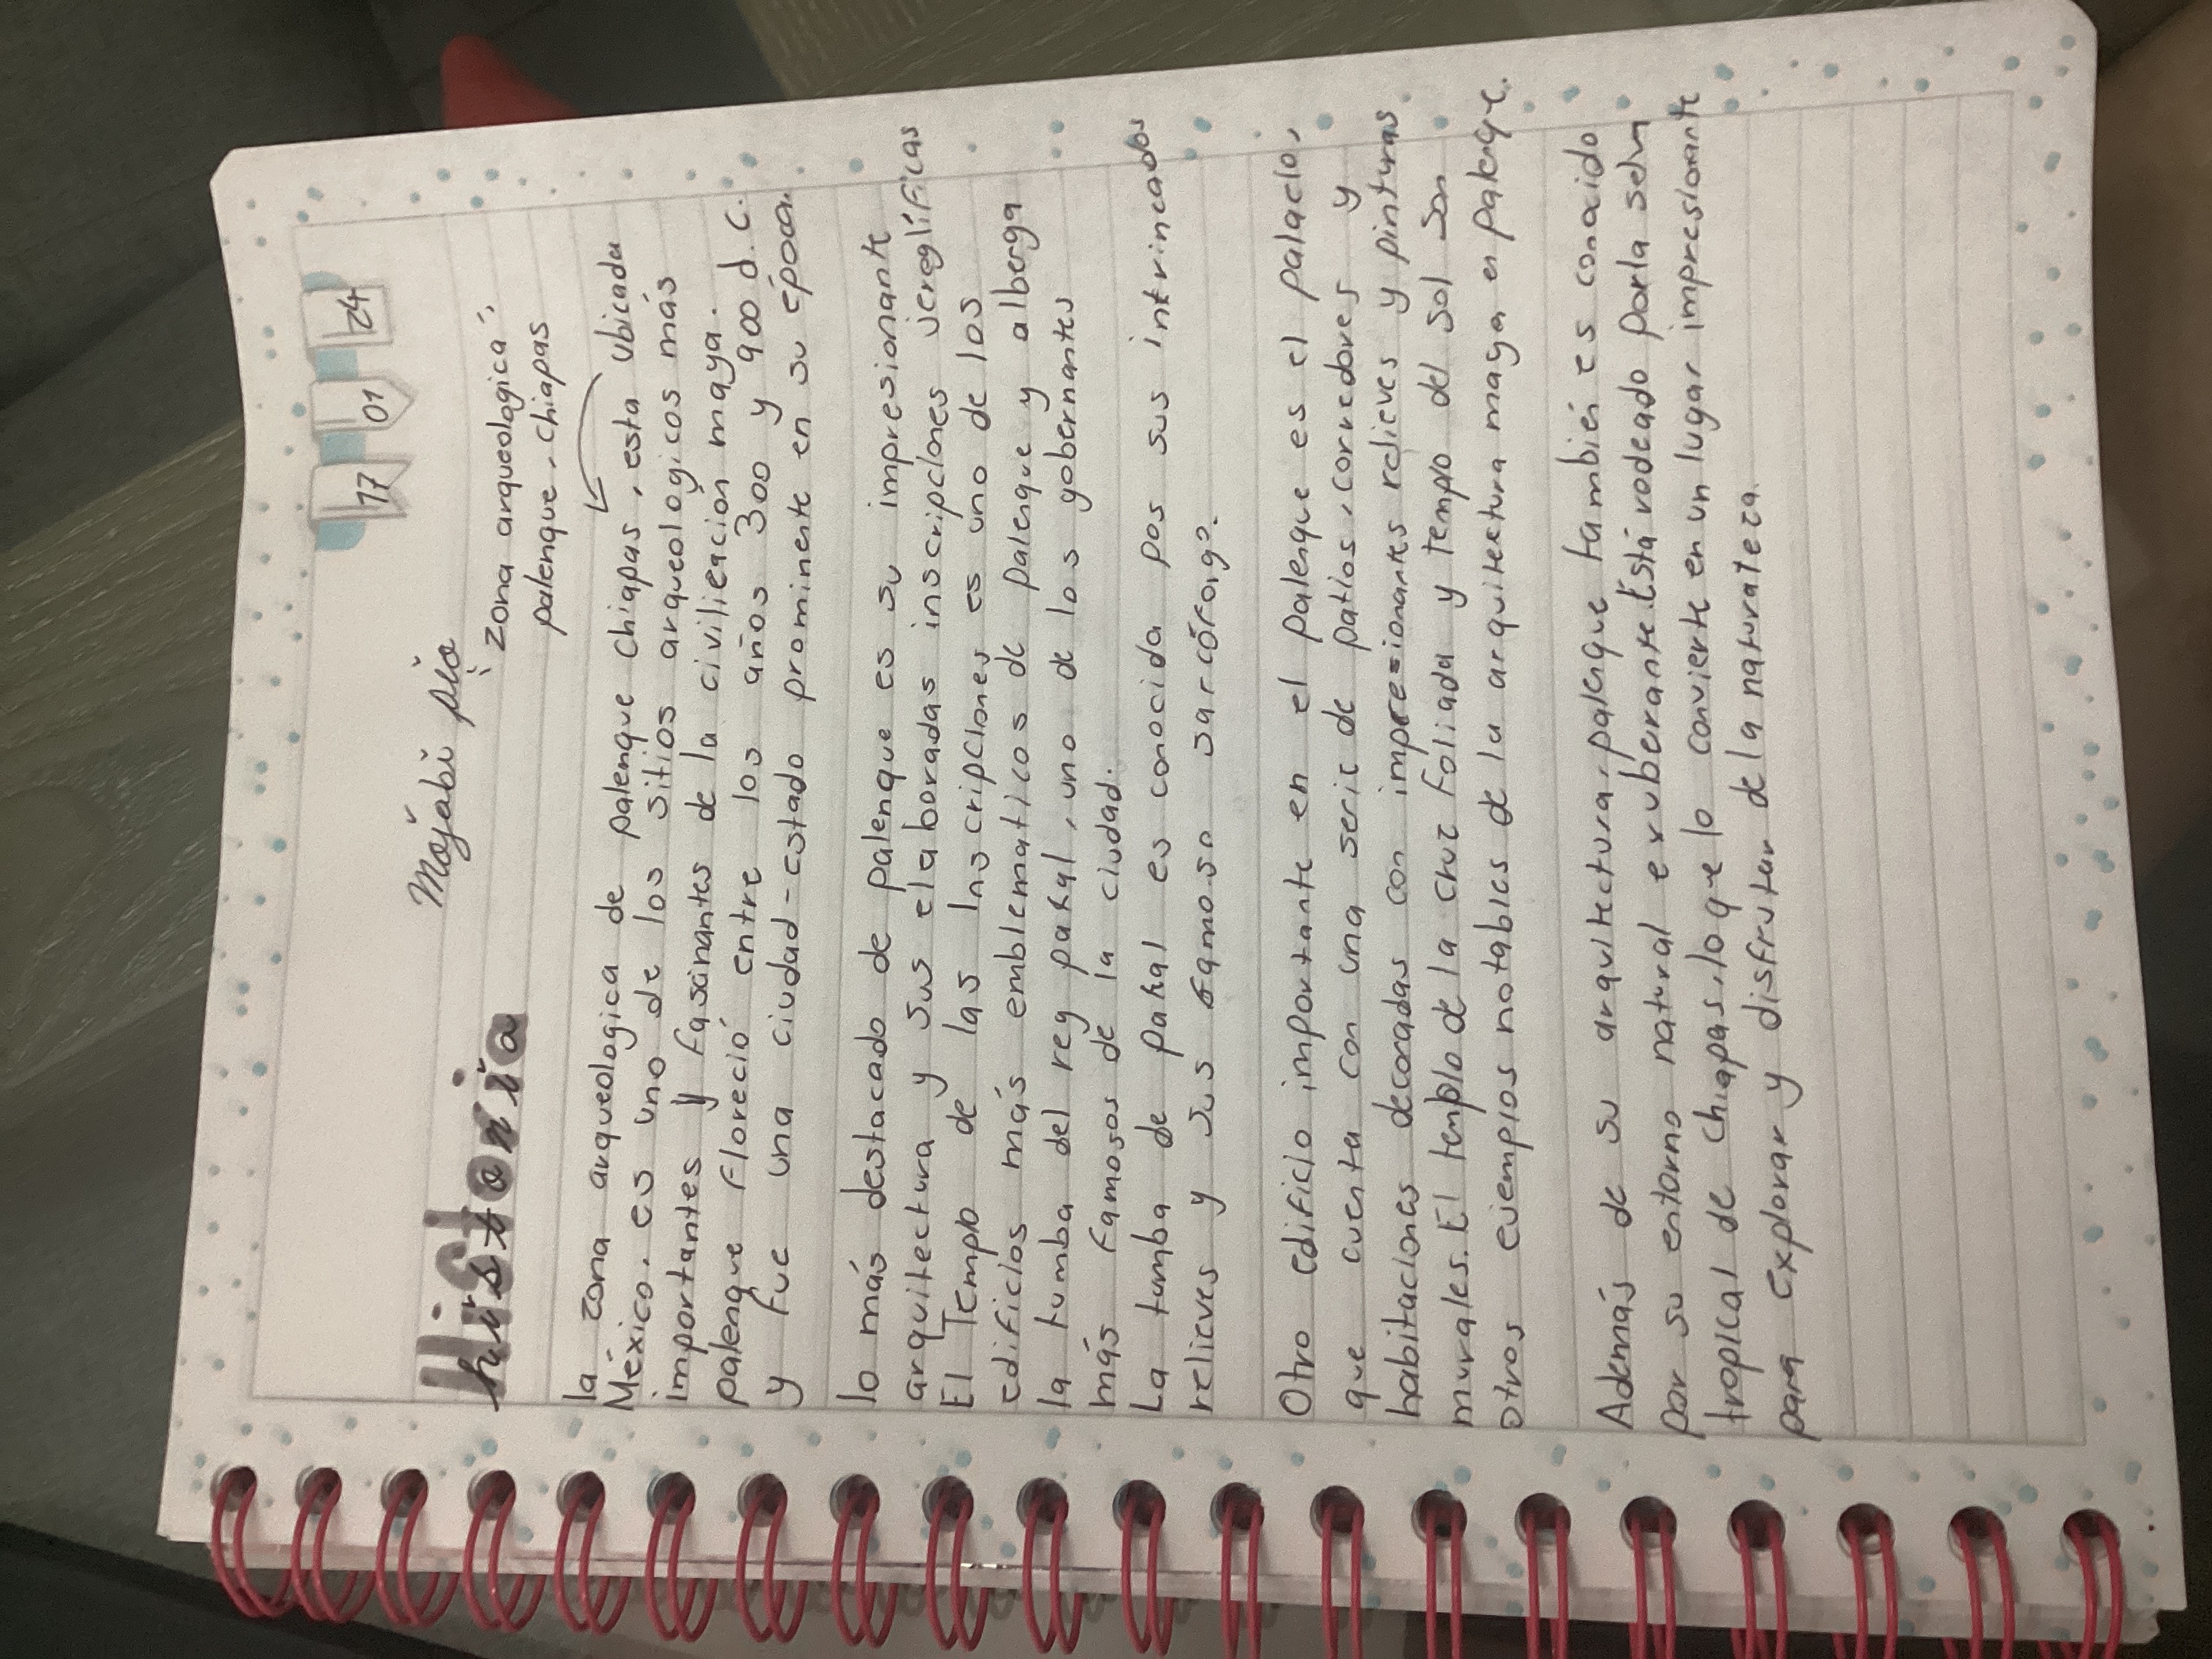 17 01 24
Majabi pio
Historia
historia
"zona arqueologica",
palenque, chiapas
la zona arqueologica de palenque chiapas, esta ubicada
México. es uno de los sitios arqueologicos más
importantes y fascinantes de la civilicación maya.
palenque Floreció entre los años 300 y 900 d.C.
y fue una ciudad-estado prominente en su época.
lo más destacado de palenque es su impresionante
arquitectura y sus elaboradas inscripciones jeroglíficas
El Templo de las Inscripciones es uno de los
edificios más emblematicos de palenque y alberga
la tumba del rey pakal, uno de los gobernantes
más famosos de la ciudad.
La tumba de pakal es conocida pos sus intrincados
relieves y sus famoso sarcófago.
Otro edificio importante en el palenque es el palacio,
que cuenta con una serie de patios, corredores y
habitaciones decoradas con impresionantes relieves y pinturas
murales. El templo de la cruz Foliada y templo del sol son
otros ejemplos notables de la arquitectura maya en palenque.
Además de su arquitectura, palenque también es conocido
por su entorno natural exuberante. Está rodeado por la selva
tropical de chiapas, lo que lo convierte en un lugar impresionante
para explorar y disfrutar de la naturaleza.